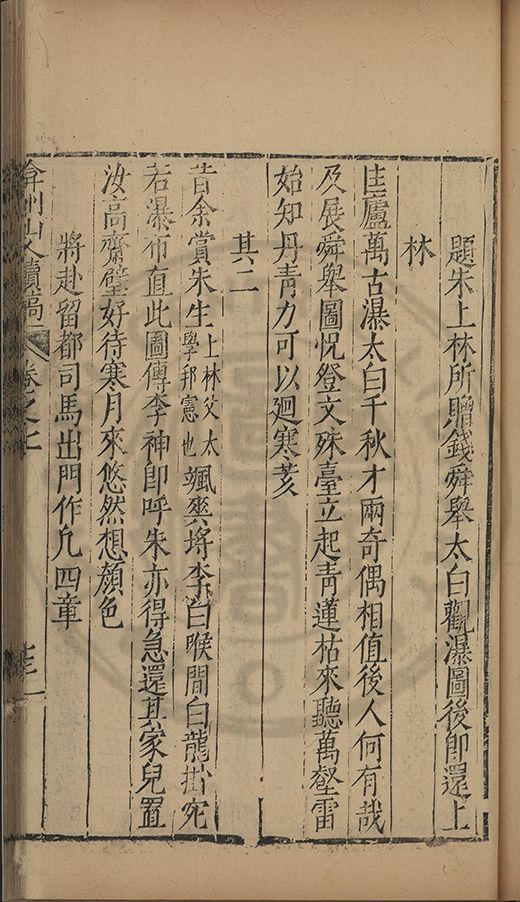 題朱上林所贈錢舜舉太白觀瀑圖後即還上
林
匡廬萬古瀑太白千秋才兩奇偶相值後人何有哉
及展舜舉圖怳登文殊臺立起青蓮枯來聽萬壑雷
始知丹青力可以廻寒荄
其二
昔余賞朱生上林父太學邦憲也颯爽埒李白喉間白龍掛宛
若瀑布直此圖傳李神即呼朱亦得急還其家兒置
汝高齋壁好待寒月來悠然想顏色
將赴留都司馬出門作凡四章
弇州山人續稿 卷之七